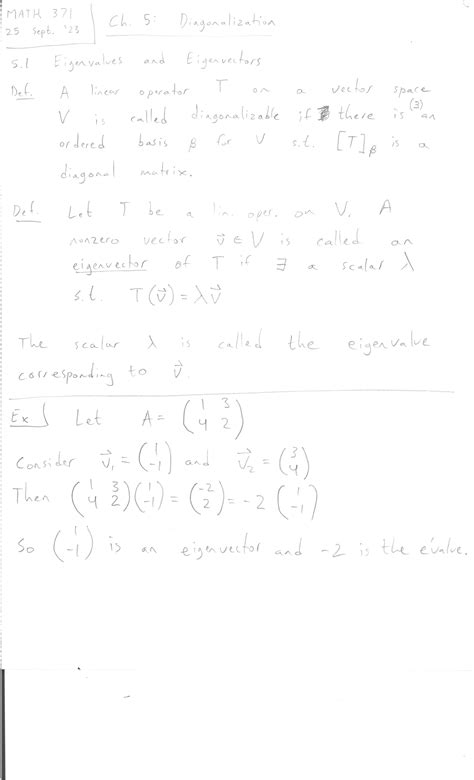 MATH 371
25 Sept. '23
Ch. 5: Diagonalization
5.1 Eigenvalues and Eigenvectors
Def. A linear operator T on a vector space
V is called diagonalizable if there is (∃) an
ordered basis β for V s.t. [T]_β is a
diagonal matrix.
Def. Let T be a lin. oper. on V. A
nonzero vector v⃗ ∈ V is called an
eigenvector of T if ∃ a scalar λ
s.t. T(v⃗) = λv⃗
The scalar λ is called the eigenvalue
corresponding to v⃗.
Ex Let A = (1 3; 4 2)
Consider v⃗₁ = (1; -1) and v⃗₂ = (3; 4)
Then (1 3; 4 2)(1; -1) = (-2; 2) = -2 (1; -1)
So (1; -1) is an eigenvector and -2 is the e'value.